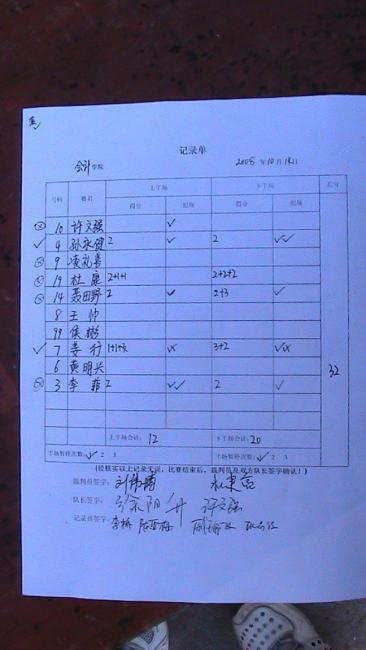 记录单
会计学院 2008年10月18日
号码 姓名 上半场 下半场 总分
得分 犯规 得分 犯规
10 许文强 ✓
4 孙永健 2 ✓ 2 ✓✓
9 凌礼喜
19 杜康 2+1+1 2+2+2
14 聂田野 2 ✓ 2+3 ✓
8 王帅
99 侯彬
7 姜行 1+1+3 ✓✓ 3+2 ✓✓
6 黄明兴
3 李菲 2 ✓✓ 2 ✓
32
上半场合计: 12 下半场合计: 20
半场暂停次数: 1 2 半场暂停次数: 1 2 3
(经核实以上记录无误,比赛结束后,裁判员及双方队长签字确认!)
裁判员签字:
队长签字: 徐阳升 许文强
记录员签字: 李娇